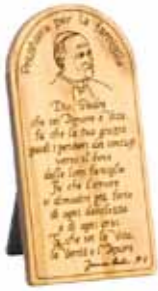 Preghiera per la famiglia
Dio, Padre
che sei Amore e Vita,
fa che la tua grazia
guidi i pensieri dei coniugi
verso il bene
delle loro famiglie.
Fa che l'amore
si dimostri più forte
di ogni debolezza
e di ogni crisi.
Tu che sei la Vita,
la Verità e l'Amore